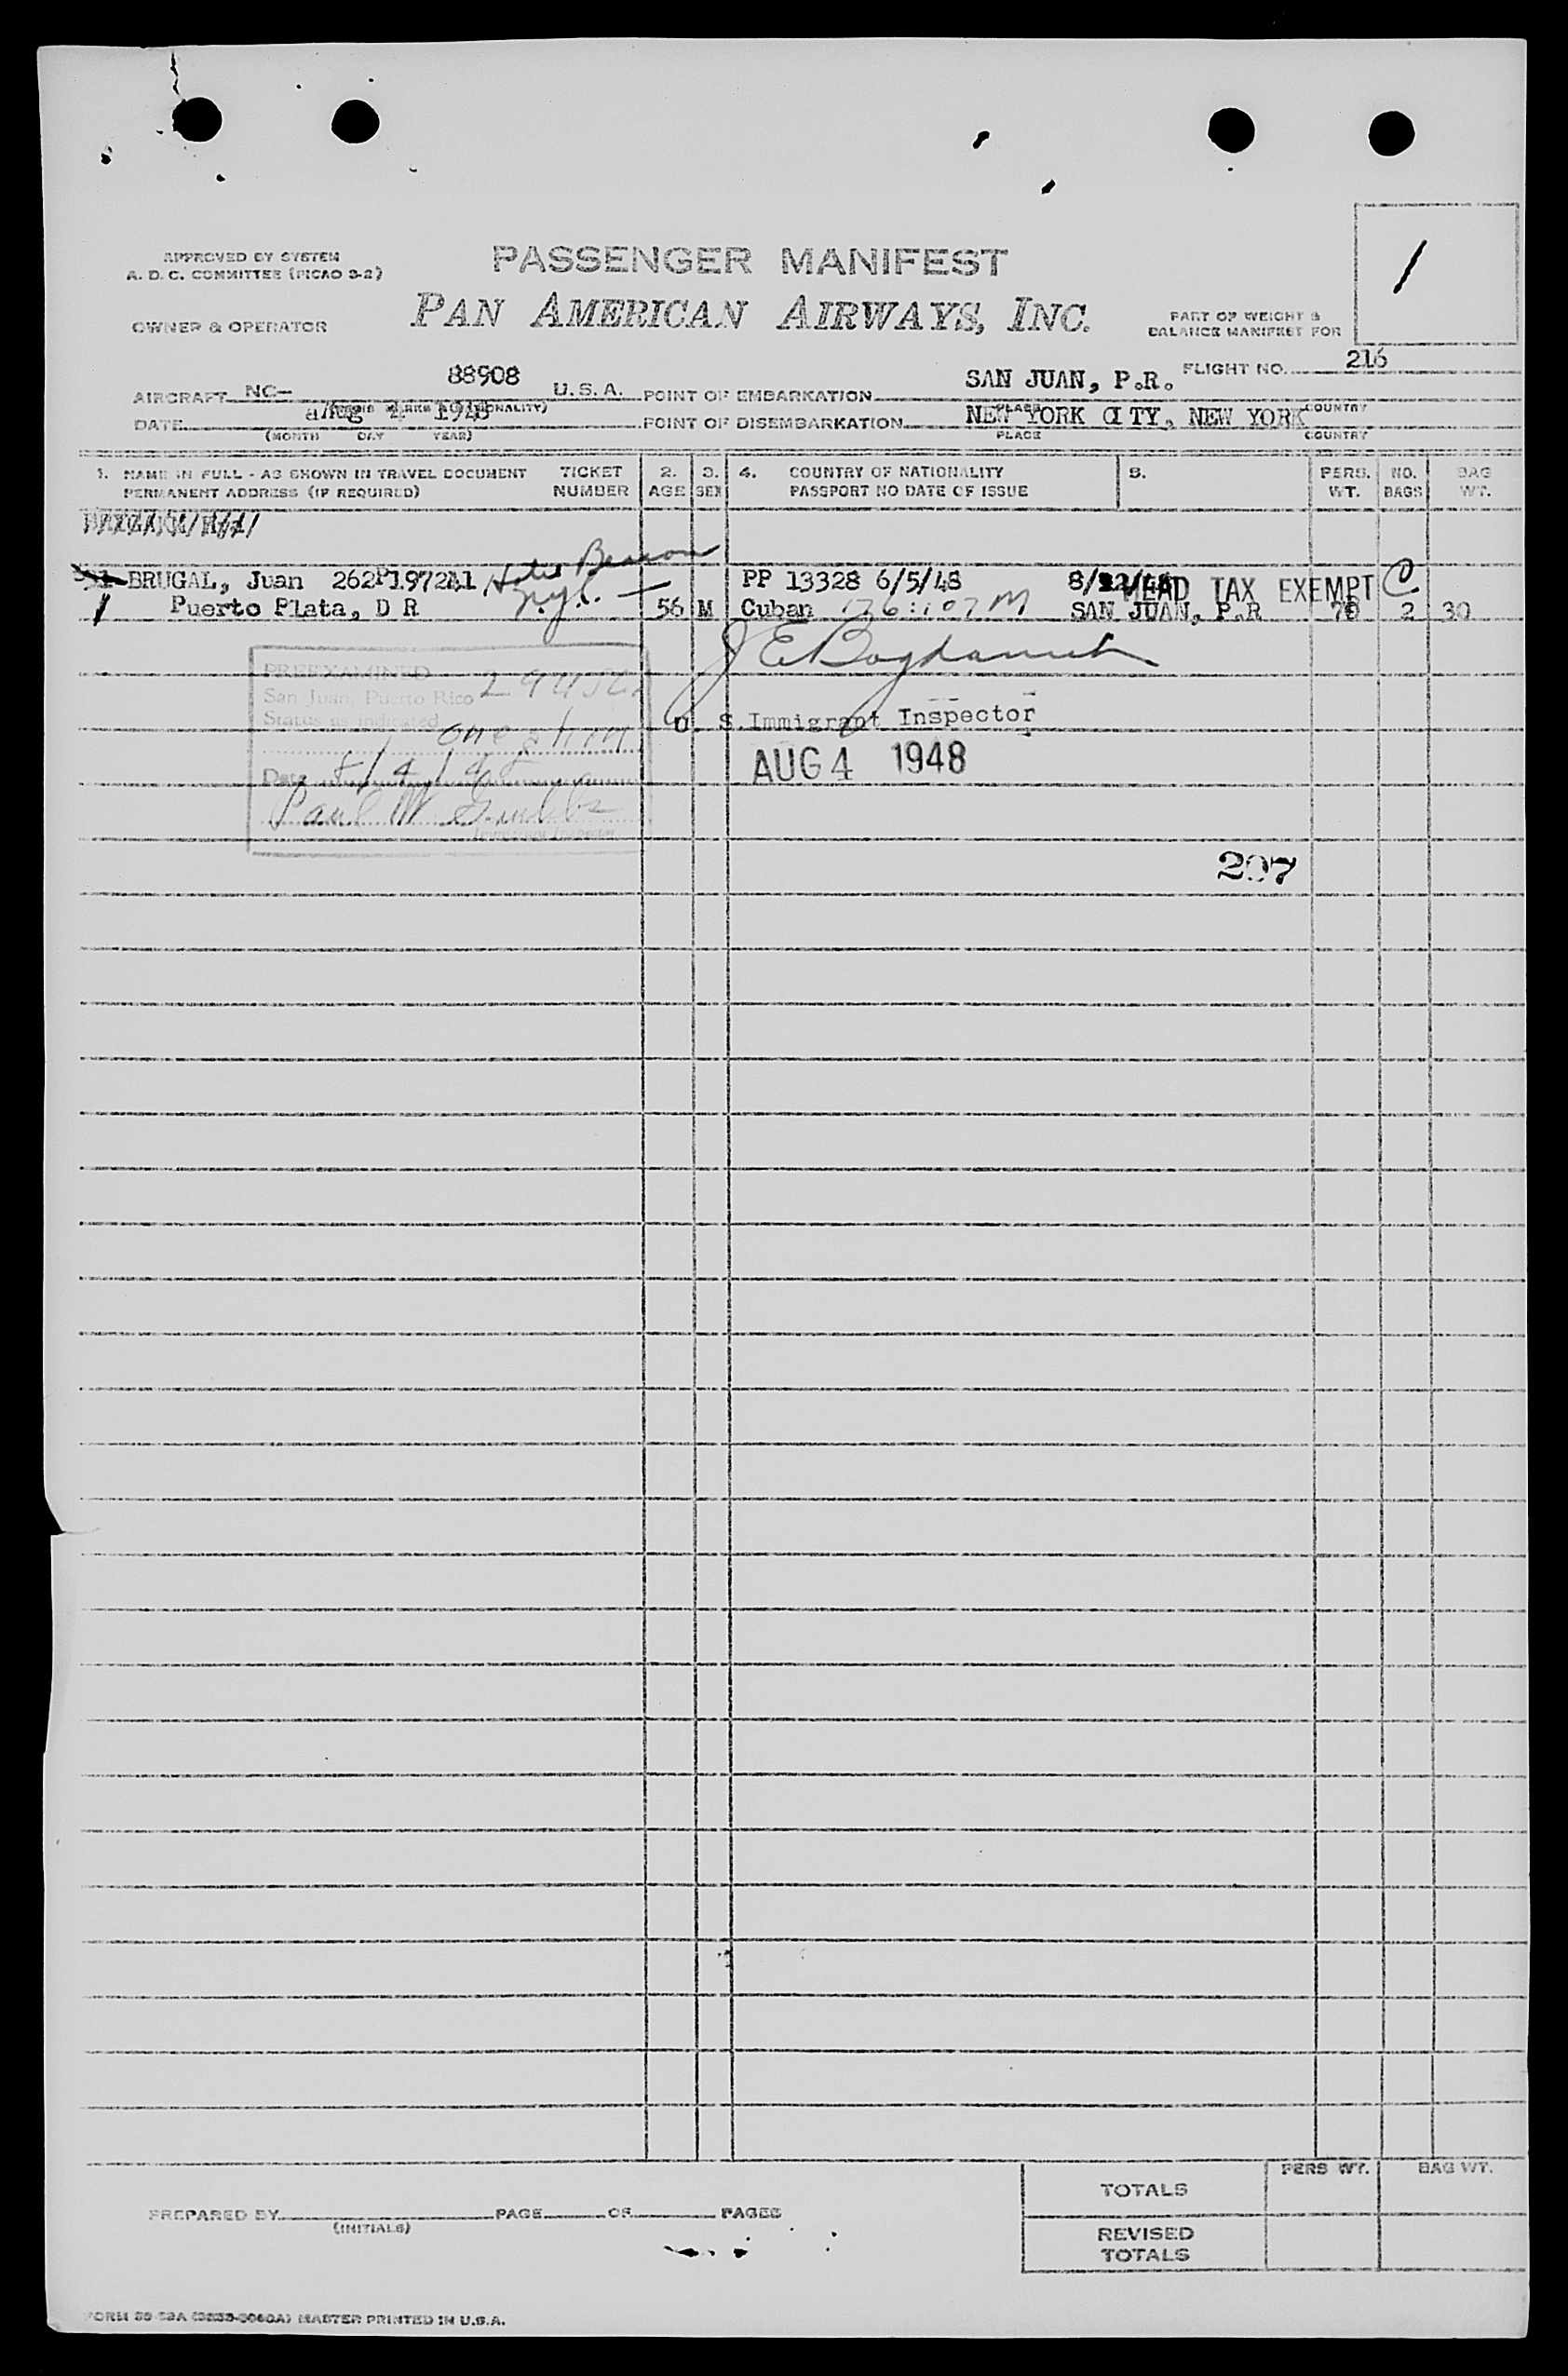 APPROVED BY SYSTEM
A. D. C. COMMITTEE (PICAO 3-2)
PASSENGER MANIFEST
1
OWNER & OPERATOR
PAN AMERICAN AIRWAYS, INC.
PART OF WEIGHT &
BALANCE MANIFEST FOR
FLIGHT NO. 216
AIRCRAFT NC- 88908 U.S.A. POINT OF EMBARKATION SAN JUAN, P.R.
PLACE COUNTRY
DATE Aug 4 1948 POINT OF DISEMBARKATION NEW YORK CITY, NEW YORK
(MONTH DAY YEAR) PLACE COUNTRY
1. NAME IN FULL - AS SHOWN IN TRAVEL DOCUMENT TICKET 2. 3. 4. COUNTRY OF NATIONALITY 5. PERS. NO. BAG
PERMANENT ADDRESS (IF REQUIRED) NUMBER AGE SEX PASSPORT NO DATE OF ISSUE WT. BAGS WT.
BRUGAL, Juan 262P1972A1 Hotel Beacon PP 13328 6/5/48 HEAD TAX EXEMPT
1 Puerto Plata, D R N.Y.C. 56 M Cuban SAN JUAN, P.R 2 30
PREEXAMINED
San Juan, Puerto Rico
Status as indicated
U. S. Immigrant Inspector
AUG 4 1948
Date 8/4/48
Paul W
Immigrant Inspector
207
PERS WT. BAG WT.
TOTALS
PREPARED BY PAGE OF PAGES
(INITIALS)
REVISED
TOTALS
MASTER PRINTED IN U.S.A.